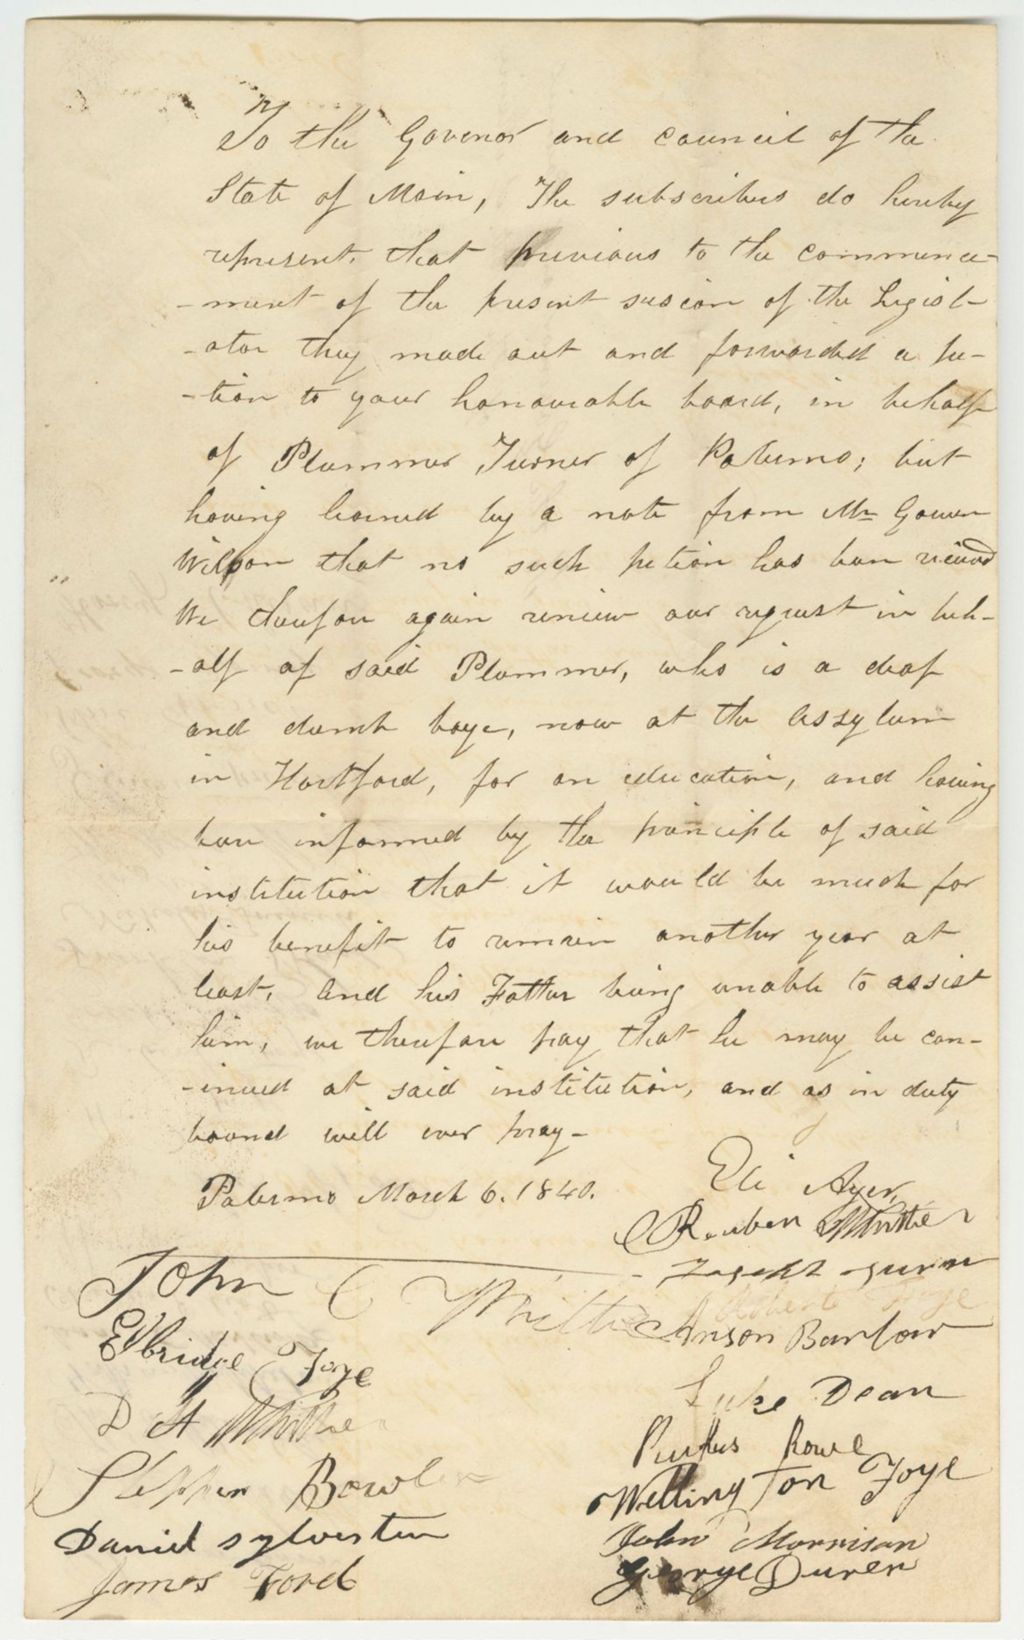 To the Govenor and council of the
State of Main, The subscribers do hereby
represent, that previous to the commence-
-ment of the present session of the Legisl-
-ator they made out and forwarded a pe-
-tion to your honourable board, in behalf
of Plummer Turner of Palermo; but
having learned by a note from Mr Gowen
Wilson that no such petion has been recieved
We therefore again renew our request in beh-
-alf of said Plummer, who is a deaf
and dumb boye, now at the Assylum
in Hartford, for an education, and having
been informed by the principle of said
institution that it would be much for
his benefit to remain another year at
least, and his Father being unable to assist
him, we therefore pray that he may be con-
-inued at said institution, and as in duty
bound will ever pray-
Palermo March 6. 1840.
Eli Ayer,
Reuben Whittier
Joseph Turner
Robert Foye
Anson Barlow
Luke Dean
Rufus Rowe
Wellington Foye
John Morrison
George Duren
John C Whittier
Elbridge Foye
D H Whittier
Stephen Bowler
Daniel Sylvester
James Ford